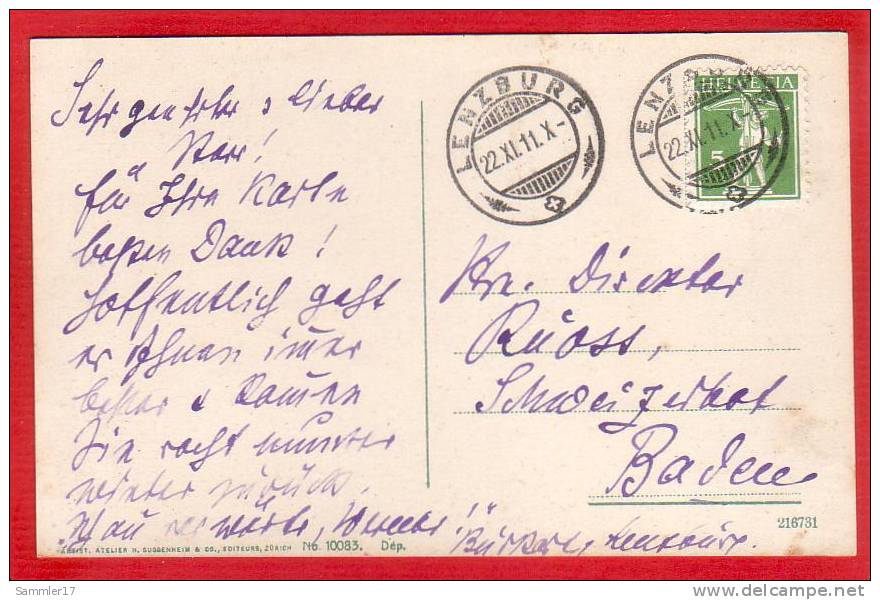 Sehr geehrter & lieber
Herr!
für Ihre Karte
besten Dank!
Hoffentlich geht
es Ihnen imer
besser & kommen
Sie recht munter
wieder zurück.
LENZBURG
22.XI.11.X-
LENZBURG
22.XI.11.X-
HELVETIA
5
Hrn. Direktor
Rüoss,
Schweizerhof
Baden
216731
ARTIST. ATELIER H. GUGGENHEIM & CO., EDITEURS, ZÜRICH No. 10083. Dép.
Lenzburg.
Sammler17
delcampe.net